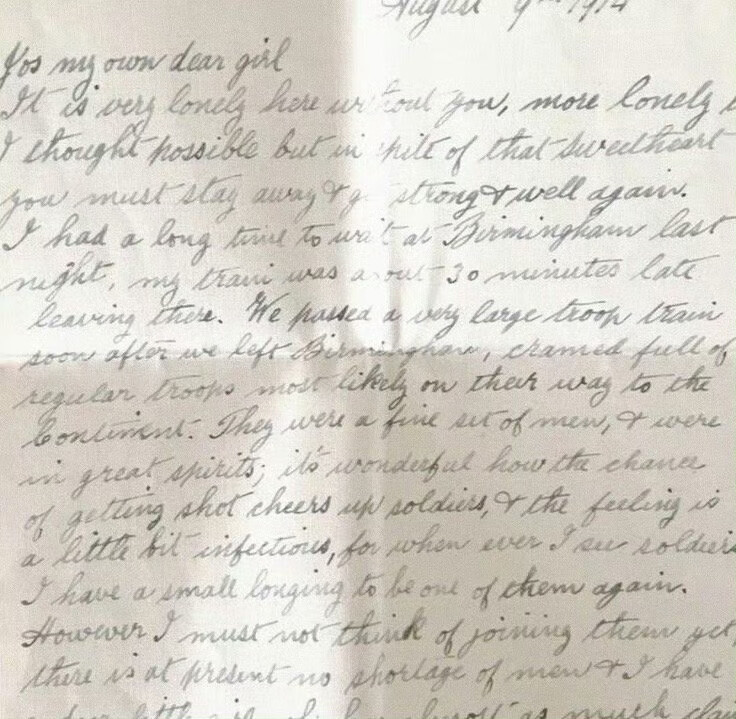 August 9th 1914
my own dear girl
It is very lonely here without you, more lonely
I thought possible but in spite of that sweetheart
you must stay away & strong & well again.
I had a long time to wait at Birmingham last
night, my train was about 30 minutes late
leaving there. We passed a very large troop train
soon after we left Birmingham, cramed full of
regular troops most likely on their way to the
Continent. They were a fine set of men, & were
in great spirits; it's wonderful how the chance
of getting shot cheers up soldiers, & the feeling is
a little bit infectious, for when ever I see soldiers
I have a small longing to be one of them again.
However I must not think of joining them yet,
there is at present no shortage of men & I have
little as much